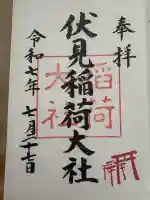 奉拝
伏見稲荷大社
稲荷
大社
令和七年 七月二十七日